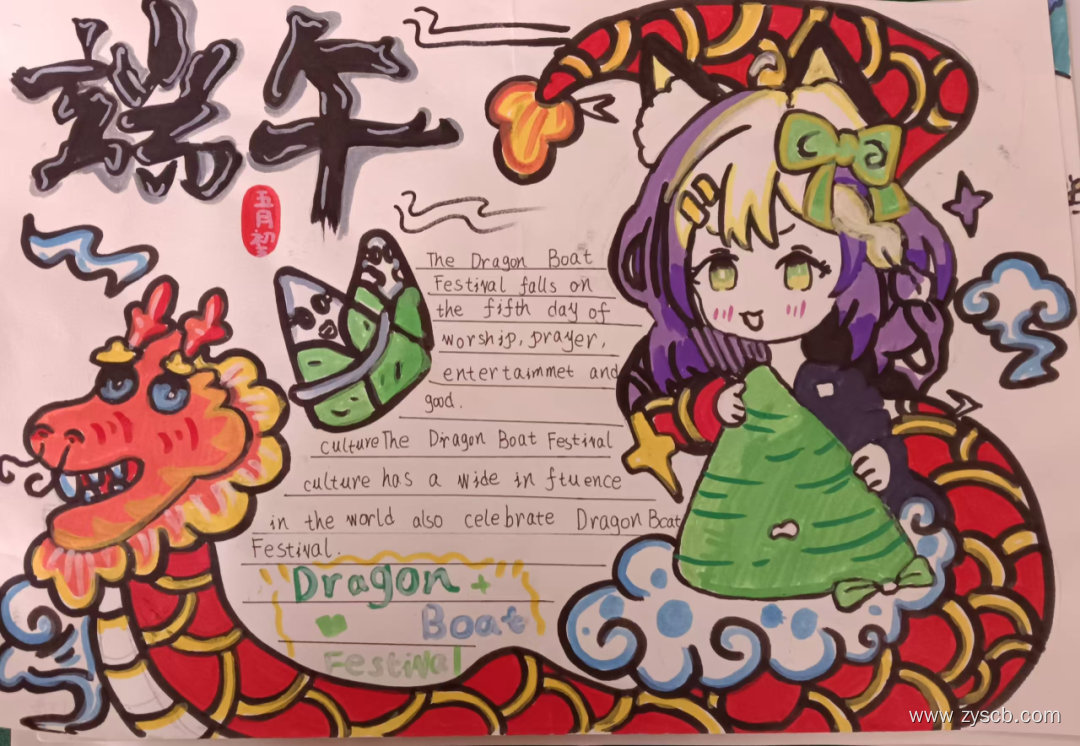 端午
五月初五
The Dragon Boat
Festival falls on
the fifth day of
worship, prayer,
entertaimmet and
good.
cultureThe Dragon Boat Festival
culture has a wide in ftuence
in the world also celebrate Dragon Boat
Festival.
Dragon
Boat
Festival
www.zyscb.com